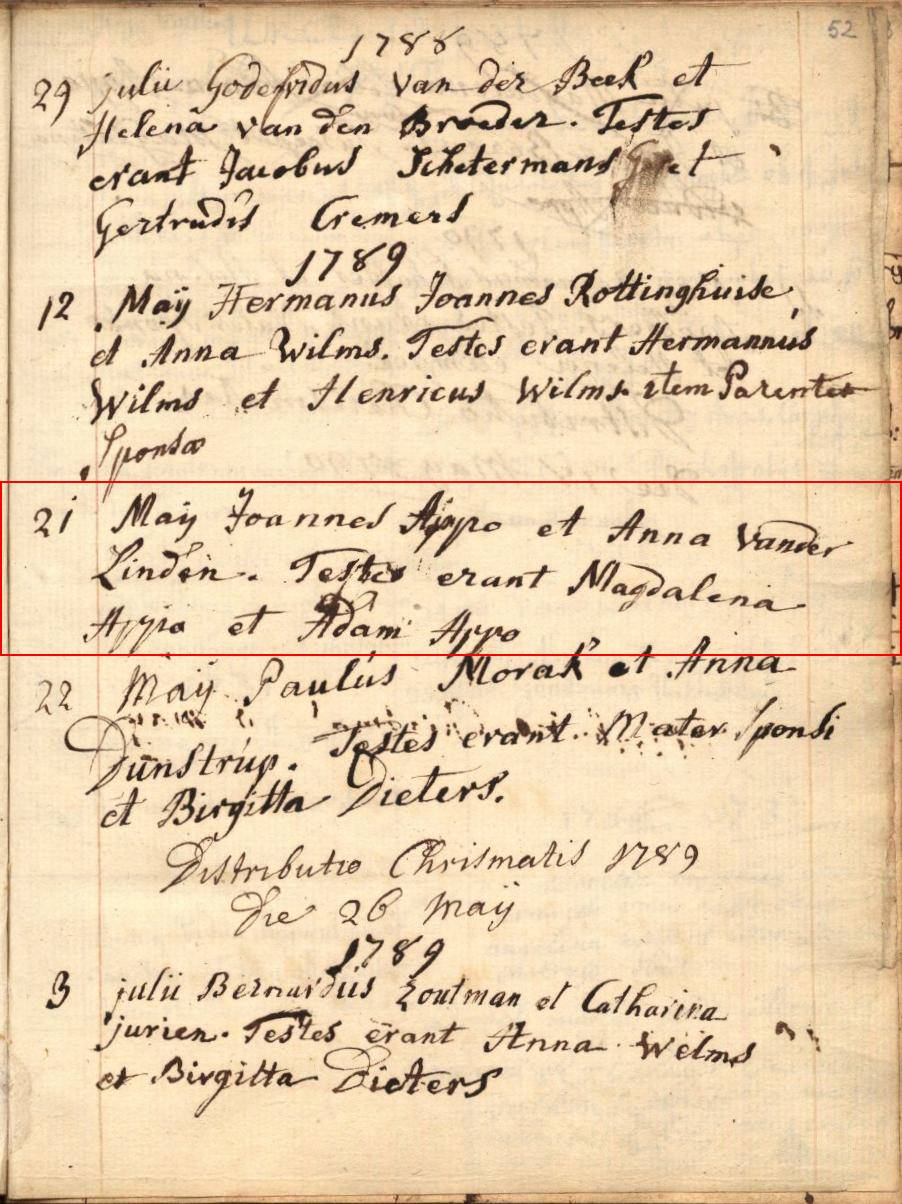 52
1788
29 julii Godefridus van der Beek et
Helena van den Broeder. Testes
erant Jacobus Schetermans et
Gertrudis Cremers
1789
12 Maÿ Hermanus Joannes Rottinghuise
et Anna Wilms. Testes erant Hermannus
Wilms et Henricus Wilms. item Parentes
Sponsæ
21 Maÿ Joannes Appo et Anna Vander
Linden. Testes erant Magdalena
Appo et Adam Appo
22 Maÿ Paulus Morak et Anna
Dunstrup. Testes erant Mater Sponsi
et Birgitta Dieters.
Distributio Chrismatis 1789
Die 26 Maÿ
1789
3 julii Bernardus Zoutman et Catharina
jurien. Testes erant Anna Wilms
et Birgitta Dieters